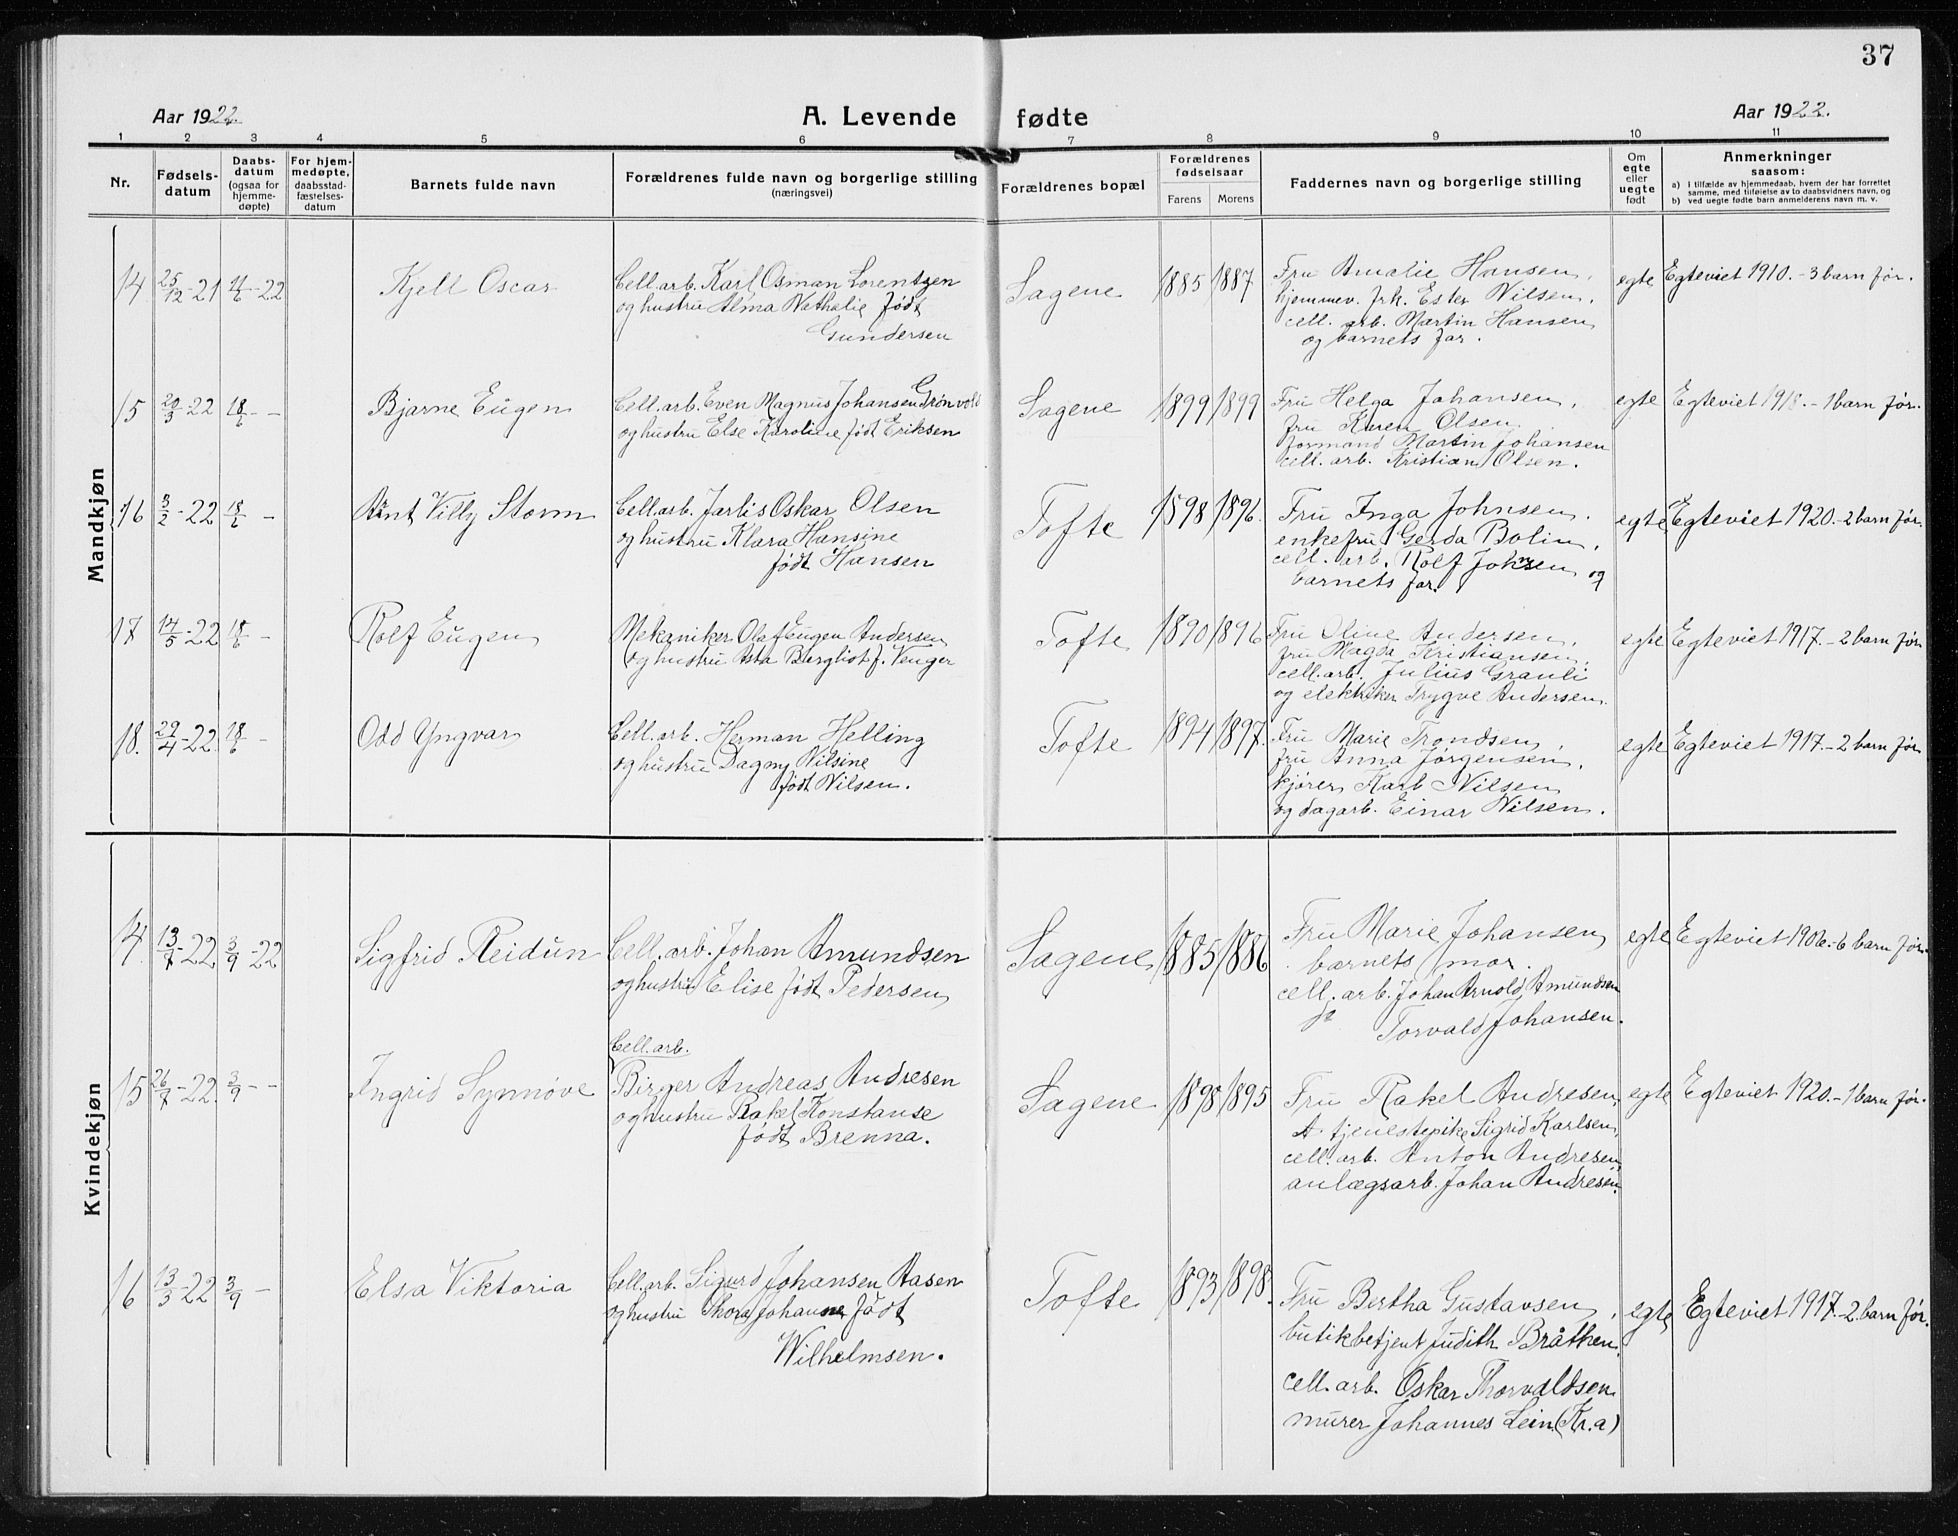 37
Aar 1922.
A. Levende fødte
Aar 1922.
1 2 3 4 5 6 7 8 9 10 11
Nr.
Fødsels-
datum
Daabs-
datum
(ogsaa for
hjemme-
døpte)
For hjem-
medøpte,
daabsstad-
fæstelses-
datum
Barnets fulde navn
Forældrenes fulde navn og borgerlige stilling
(næringsvei)
Forældrenes bopæl
Forældrenes
fødselsaar
Farens Morens
Faddernes navn og borgerlige stilling
Om
egte
eller
uegte
født
Anmerkninger
saasom:
a) i tilfælde av hjemmedaab, hvem der har forrettet
samme, med tilføielse av to daabsvidners navn, og
b) ved uegte fødte barn anmelderens navn m. v.
Mandkjøn
14 25/12-21 4/6-22 Kjell Oscar
Cell. arb. Karl Osman Lorentzen
og hustru Alma Nathalie født
Gundersen
Sagene 1885 1887
Fru Amalie Hansen,
hjemmev. frk. Ester Nilsen,
cell. arb. Martin Hansen
og barnets far.
egte Egteviet 1910. - 3 barn før.
15 20/3-22 18/6 - - Bjarne Eugen
Cell. arb. Even Magnus Johansen Grønvold
og hustru Else Karoline født Eriksen
Sagene 1899 1899
Fru Helga Johansen,
fru Karen Olsen,
formand Martin Johansen
cell. arb. Kristian Olsen.
egte Egteviet 1918. - 1 barn før.
16 3/2-22 18/6 - Arnt Villy Storm
Cell. arb. Jarlis Oskar Olsen
og hustru Klara Hansine
født Hansen
Tofte 1898 1896.
Fru Inga Johnsen.
enkefru Gerda Bolin,
cell. arb. Rolf Johnsen og
barnets far.
egte Egteviet 1920. - 2 barn før.
17 14/5-22 18/6 - Rolf Eugen
Mekaniker Olaf Eugen Andersen
og hustru Asta Bergliot f. Venger
Tofte 1890 1896
Fru Oline Andersen,
fru Magda Kristiansen,
cell. arb. Julius Grauli
og elektriker Trygve Andersen.
egte Egteviet 1917. - 2 barn før
18. 29/4-22 18/6 - Odd Yngvar
Cell. arb. Herman Helling
og hustru Dagny Nilsine
født Nilsen.
Tofte 1894 1897.
Fru Marie Trondsen,
fru Anna Jørgensen,
kjører Karl Nilsen
og dagarb. Einar Nilsen.
egte Egteviet 1917. - 2 barn før
Kvindekjøn
14. 13/7-22 3/9-22 Sigfrid Reidun
Cell. arb. Johan Amundsen
og hustru Elise født Pedersen,
Sagene 1885 1886
Fru Marie Johansen,
barnets mor.
cell. arb. Johan Arnold Amundsen
Torvald Johansen.
egte Egteviet 1906. - 6 barn før.
15 26/7-22. 3/9 - - Ingrid Synnøve
Cell. arb.
Birger Andreas Andresen
og hustru Rakel Konstanse
født Brenna.
Sagene 1898 1895
Fru Rakel Andresen,
tjenestepike Sigrid Karlsen,
cell. arb. Anton Andresen,
anlægsarb. Johan Andresen.
egte Egteviet 1920. - 1 barn før.
16 13/3-22 3/9 - Elsa Viktoria
Cell. arb. Sigurd Johansen Aasen
og hustru Thora Johanne født
Wilhelmsen.
Tofte 1893 1898.
Fru Bertha Gustavsen,
butikbetjent Judith Bråthen.
cell. arb. Oskar Thorvaldsen
murer Johannes Lein (Kr.a)
egte Egteviet 1917. - 2. barn før.